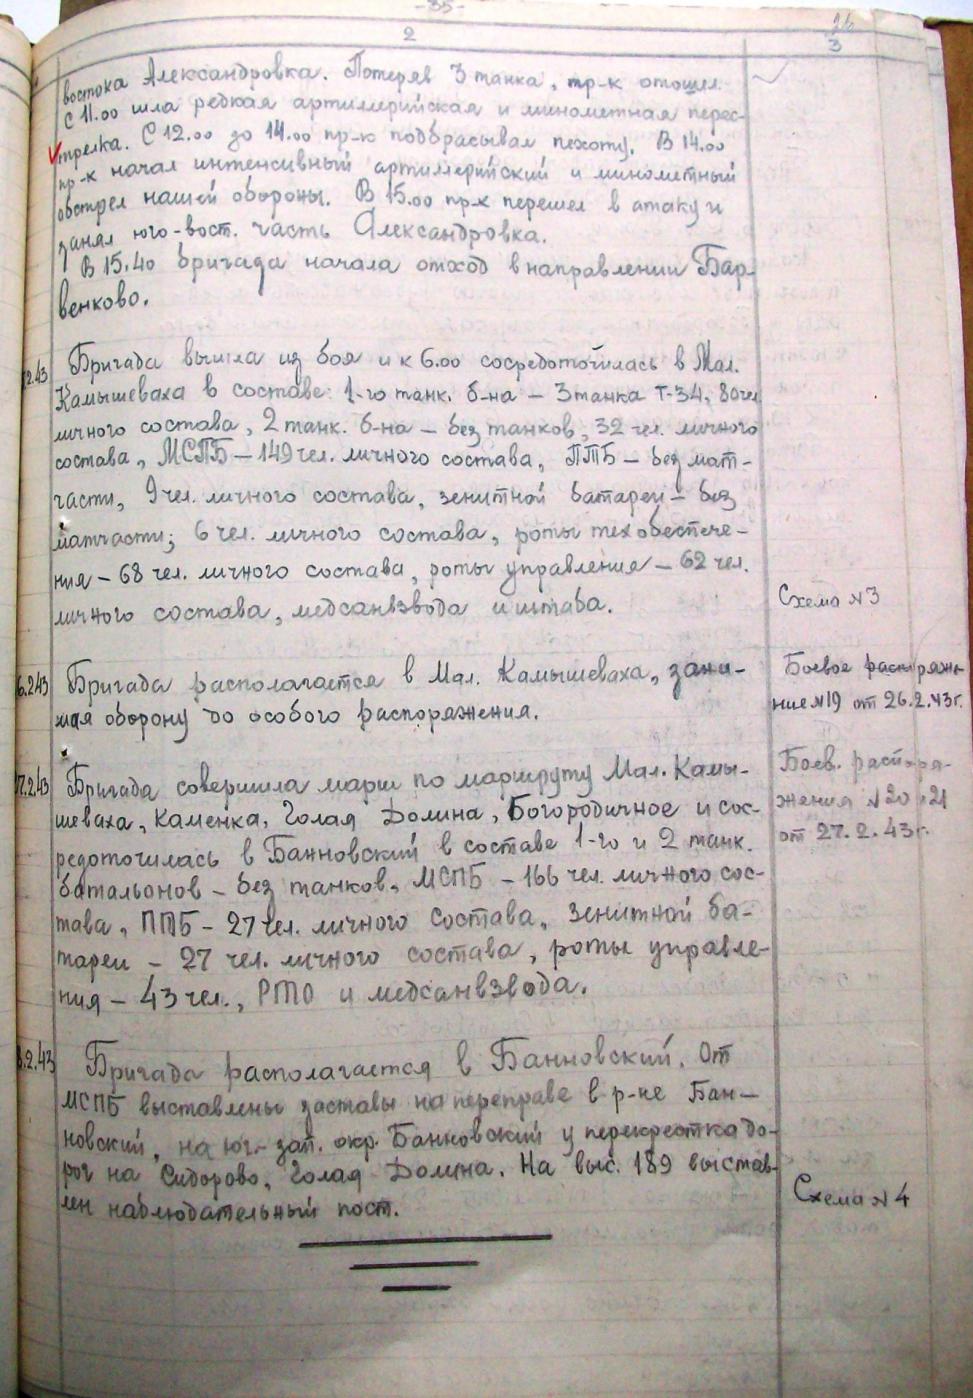 -35-
26
2
3
востока Александровка. Потеряв 3 танка, пр-к отошел.
С 11.00 шла редкая артиллерийская и минометная перес-
трелка. С 12.00 до 14.00 пр-к подбрасывал пехоту. В 14.00
пр-к начал интенсивный артиллерийский и минометный
обстрел нашей обороны. В 15.00 пр-к перешел в атаку и
занял юго-вост. часть Александровка.
В 15.40 бригада начала отход в направлении Бар-
венково.
2.43 Бригада вышла из боя и к 6.00 сосредоточилась в Мал.
Камышеваха в составе: 1-го танк. б-на – 3 танка Т-34, 80 чел
личного состава, 2 танк. б-на – без танков, 32 чел. личного
состава, МСПБ – 149 чел. личного состава, ПТБ – без мат-
части, 9 чел. личного состава, зенитной батареи – без
матчасти; 6 чел. личного состава, роты техобеспече-
ния – 68 чел. личного состава, роты управления – 62 чел.
личного состава, медсанвзвода и штаба.
Схема №3
6.2.43 Бригада располагается в Мал. Камышеваха, зани-
мая оборону до особого распоряжения.
Боевое распоряже-
ние №19 от 26.2.43г.
7.2.43 Бригада совершила марш по маршруту Мал. Камы-
шеваха, Каменка, Голая Долина, Богородичное и сос-
редоточилась в Банновский в составе 1-го и 2 танк.
батальонов – без танков, МСПБ – 166 чел. личного сос-
тава, ПТБ – 27 чел. личного состава, зенитной ба-
тареи – 27 чел. личного состава, роты управле-
ния – 43 чел., РТО и медсанвзвода.
Боев. распоря-
жения №20 и 21
от 27.2.43г.
8.2.43 Бригада располагается в Банновский. От
МСПБ выставлены заставы на переправе в р-не Бан-
новский, на юг.-зап. окр. Банновский у перекрестка до-
рог на Сидорово, Голая Долина. На выс. 189 выстав-
лен наблюдательный пост.
Схема №4